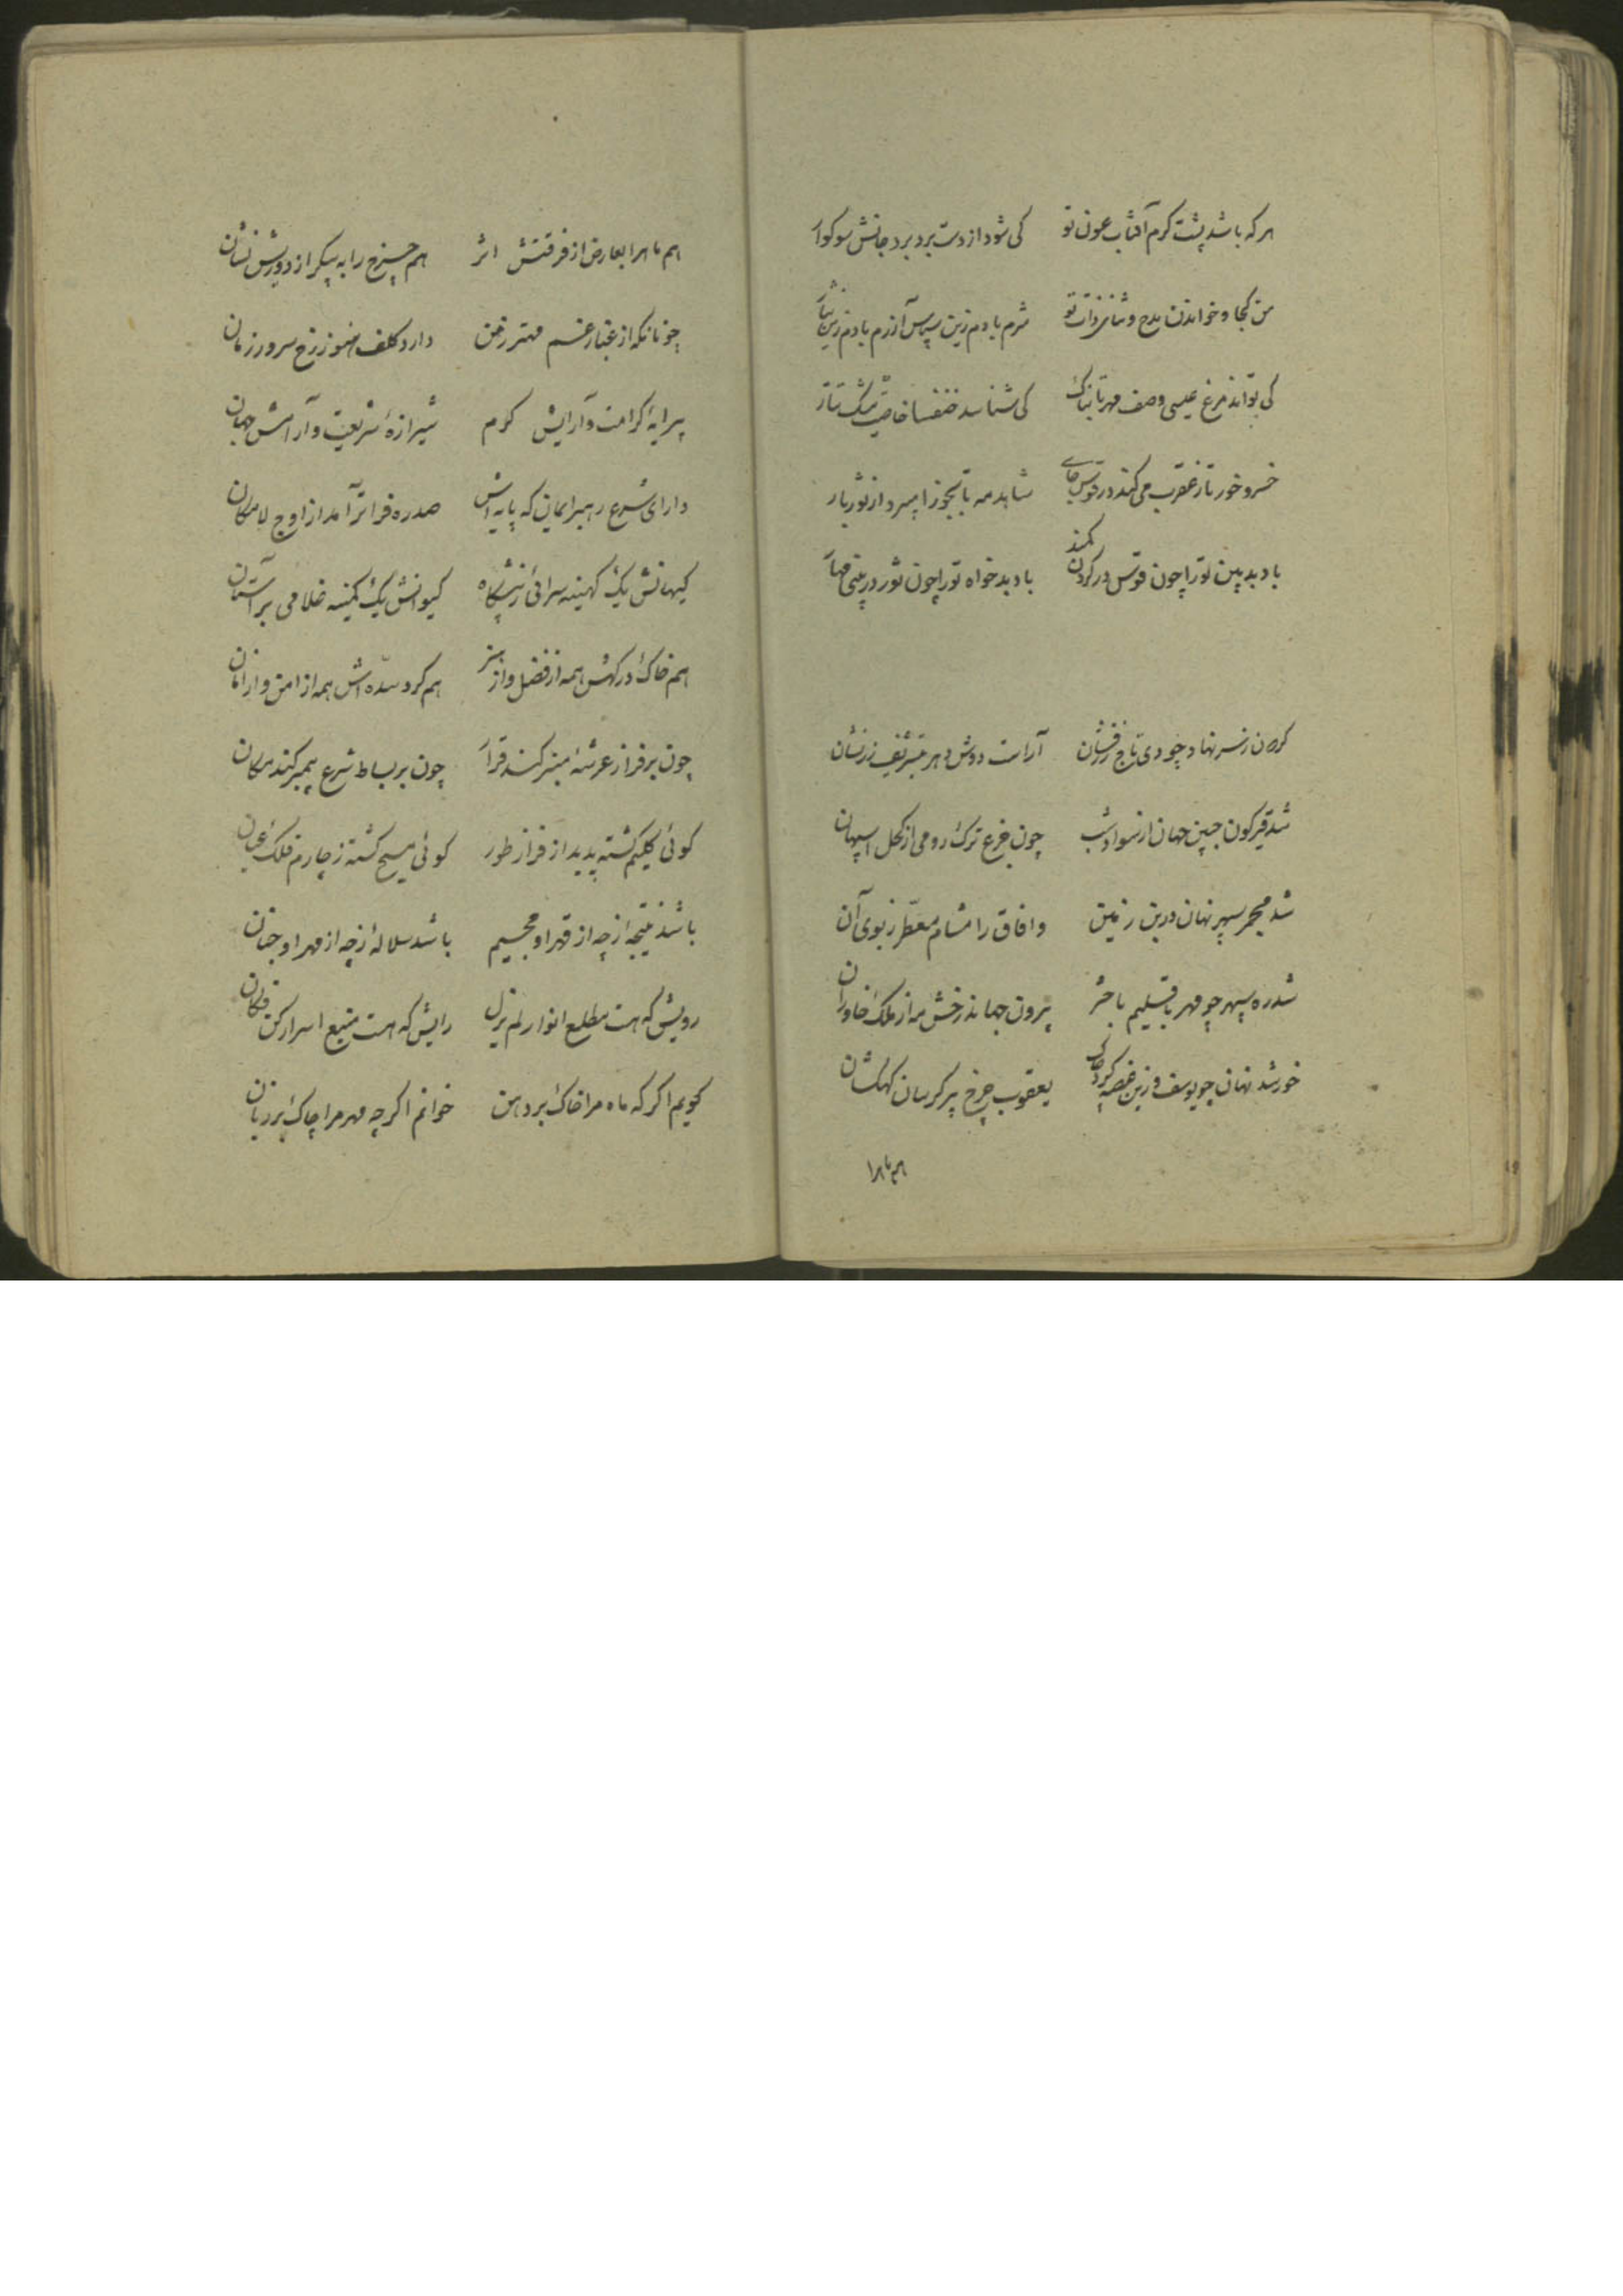 هر که باشد پشت کرم آفتاب عون تو کی شود از دست برد برد جانش سوکوار
من کجا و خواندن مدح و ثنا ذات تو شرم بادم زین سپاس آزرم بادم زین
کی تواند مرغ عیسی وصف مهر تابناک کی شناسد خنفسا خاصیت مشک تتار
خسرو خور تا ز عقرب می کند در قوس جای شاهد مه تا بجوزا میرود از ثور بار
باد بدبین تو را چون قوس در کردن کمند باد بدخواه تو را چون ثور در بینی مهار
کردن ز سر نهاد چو دی تاج زرفشان آراست دوش دهر بتشریف زرنشان
شد قیرکون جبین جهان از سواد شب چون فرع ترک رومی از کحل اسپهان
شد مجمر سپهر نهان در بن زمین وافاق را مشام معطر ز بوی آن
شد ره سپهر چو مهر باقلیم باختر بیرون جهاند رخش مه از ملک خاوران
خورشد نهان چو یوسف و زین غصه کرد چاک یعقوب چرخ پیر کریبان کهکشان
هم ماهرا
هم ماهرا بعارض از فرقتش اثر هم چرخ را به پیکر از دوریش نشان
چونانکه از غبار غم مهتر زمن دارد کلف هنوز رخ سرور زمان
پیرایهٔ کرامت و آرایش کرم شیرازهٔ شریعت و آرامش جهان
دارای شرع رهبر ایمان که پایه اش صد ره فراتر آمد از اوج لامکان
کیهانش یک کهینه سرائی ز پیشگاه کیوانش یک کمینه غلامی بر آستان
هم خاک درکهش همه از فضل و از هنر هم کرد سده اش همه از امن و از امان
چون بر فراز عرشه منبر کند قرار چون بر بساط شرع پیمبر کند مکان
کوئی کلیم کشته پدید از فراز طور کوئی مسیح کشته ز چارم فلک عیان
باشد نتیجه از چه از قهر او جحیم باشد سلالهٔ ز چه از مهر او جنان
رویش که هست مطلع انوار لم یزل رایش که هست منبع اسرار کن فکان
کویم اکر که ماه مرا خاک بر دهن خوانم اکر چه مهر مرا چاک بر زبان